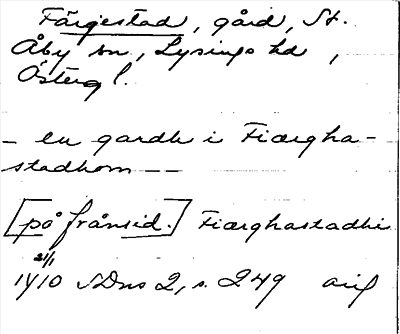 Färgestad, gård, St.
Åby sn, Lysings hd,
Östergl.
- en gardh i Fiærgha-
stadhom --
[på frånsid.] Fiærghastadhe
21/1
1410 SDns 2, s. 249 avs